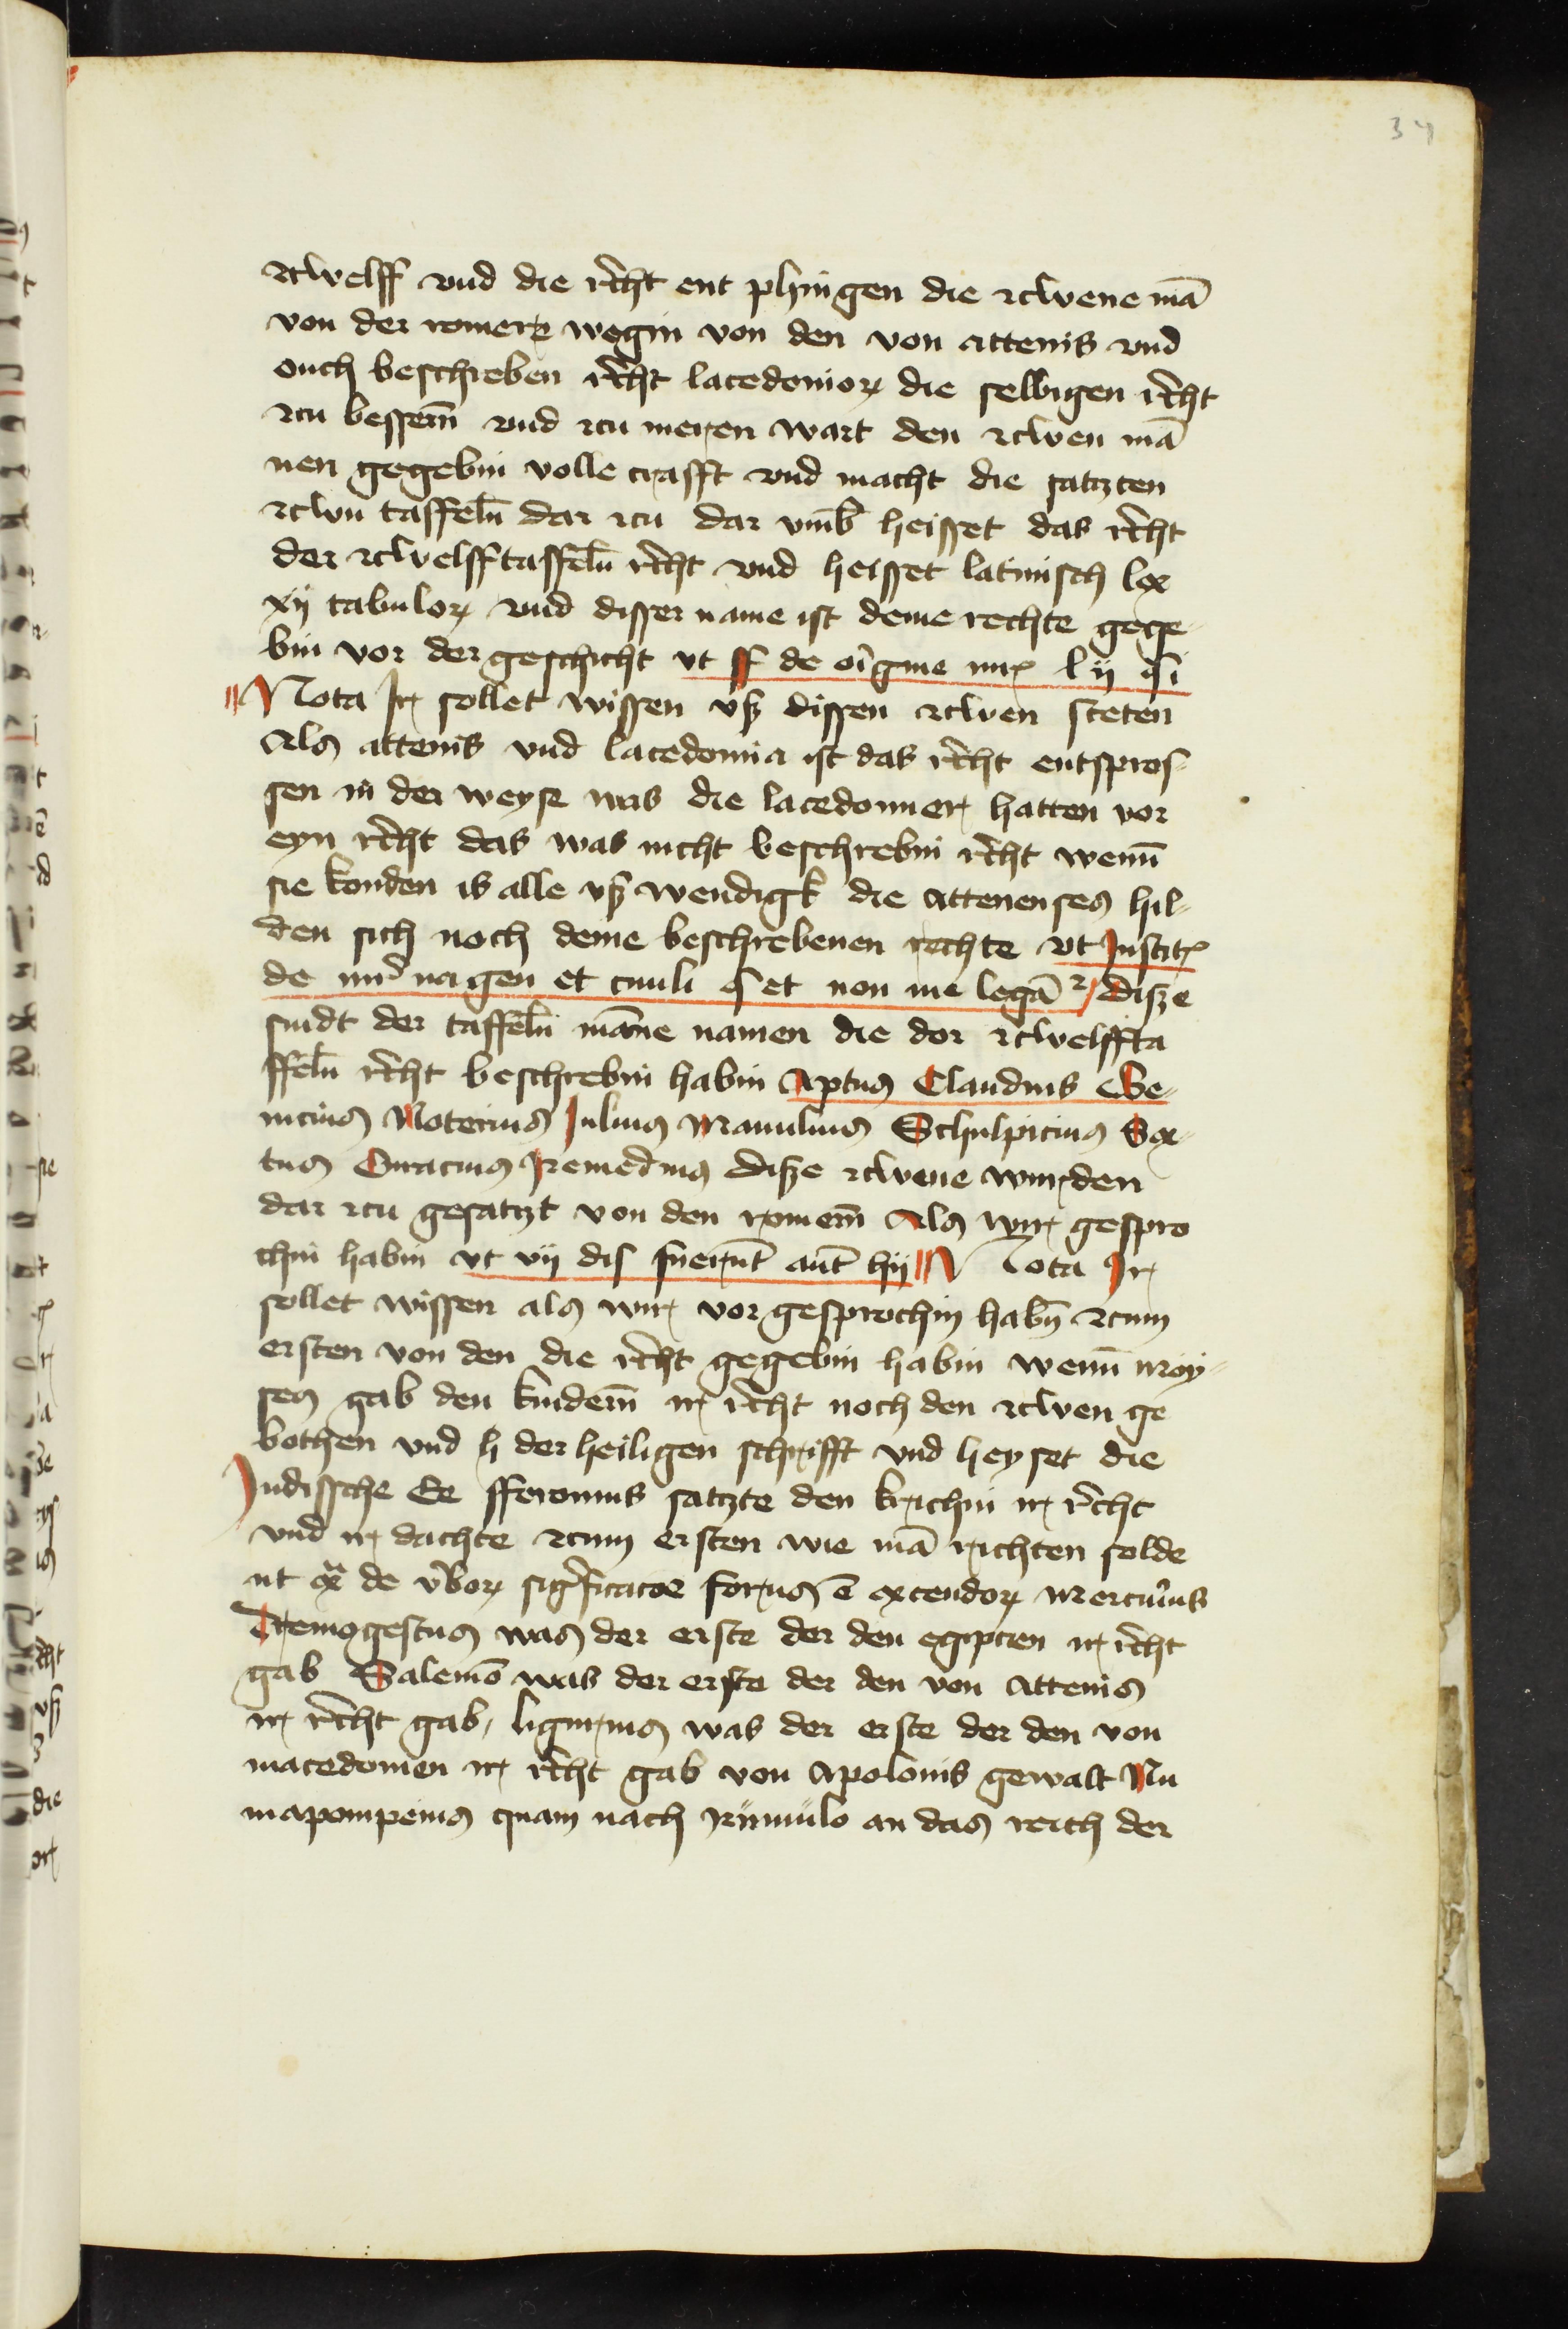 34
czwelff vnd die r̄cht ent phingen die czwene mā
von der romere wegin von den von attenis vnd
ouch beschreben r̄cht lacedonioꝝ die selbigen r̄cht
czu besser̄n vnd czu meren wart den czwen mā
nen gegebin volle crafft vnd macht die satzten
czwu taffel̄n dar czu dar vmb̄ heisset das r̄cht
der czwelfftaffel̄n r̄cht vnd heisset latinisch lex
xij tabuloꝝ vnd disser name ist deme rechte gege-
bin vor der geschicht vt ff de oīgine iur̉ l ij
Nota Ir sollet wissen vß dissen czwen steten
Als attenis vnd lacedonia ist das r̄cht entspros-
sen in der weyse was die lacedonier hatten vor
eyn r̄cht das was nicht beschrebin r̄cht wenn̄
sie konden is alle vß wendigk die attenenses hil-
den sich noch deme beschrebenen rechte vt Instit̉
de iur̄ na gen et ciuili et non ine legā disze
sindt der taffel̄n māne namen die dor czwelffta
ffel̄n r̄cht beschrebin habin Aptus Claudius Ge-
nicius Noterius Iulius Manulius Schulpicius Sex-
tus Curacius Iremedius disze czwene wurden
dar czu gesatzt von den romer̄n Als wir gespro
chin habin vt vij dis fuerunt̄ aut̄ hij Nota Ir
sollet wissen als wir vor gesprochin habn̄ czum
ersten von den die r̄cht gegebin habin wenn̄ moy-
ses gab den kinder̄n ir r̄cht noch den czwen ge
bothen vnd h der heiligen schrifft vnd heyset die
Judissche Ee fferonius satzte den krichin ir r̄cht
vnd ir dachte czum ersten wie mā richten solde
ut ex̄ de v̄boꝝ siḡficacoe forus ē excendoꝝ Mercur̄ius
Tremogestus was der erste der den egipcien ir r̄cht
gab Salemō was der erste der den von Attenis
ir r̄cht gab, ligurius was der erste der den von
macedonien ir r̄cht gab von Apolonis gewalt Nu
mapompeius quam nach Rumulo an das reich der